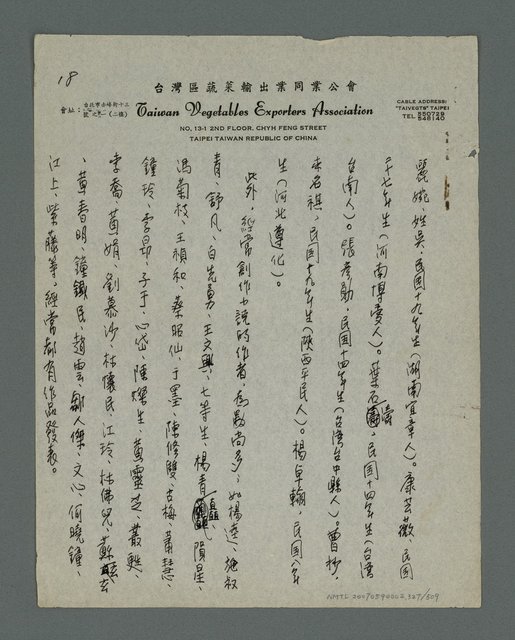 18
台灣區蔬菜輸出業同業公會
會址：台北市赤峰街十三號之一（二樓）
Taiwan Vegetables Exporters Association
CABLE ADDRESS:
"TAIVEGTS" TAIPEI
TEL 550729
548140
NO. 13-1 2ND FLOOR, CHYH FENG STREET
TAIPEI TAIWAN REPUBLIC OF CHINA
婉，姓吳，民國十九年生（湖南宜章人）。康芸薇，民國
二十七年生（河南博愛人）。葉石濤，民國十四年生（台灣
台南人）。張彥勳，民國十四年生（台灣台中縣人）。曹抄，
本名祺，民國十九年生（陝西平民人）。楊卓翰，民國八年
生（河北遵化）。
此外，經常創作小說的作者，為數尚多，如楊逵、施叔
青、舒凡、白先勇、王文興、七等生、楊青矗、隕星、
馮菊枝、王禎和、蔡昭仙、于墨、陳修雙、古梅、蕭
鍾玲、李昂、子于、心岱、陳燦生、黃靈芝、叢甦、
李喬、黃娟、劉慕沙、林懷民、江玲、林佛兒、蘇玄玄
、黃春明、鍾鐵民、趙雲、鄒人傑、文心、何曉鐘、
江上、紫藤等，經常都有作品發表。
NMTL 20070590002 327/509